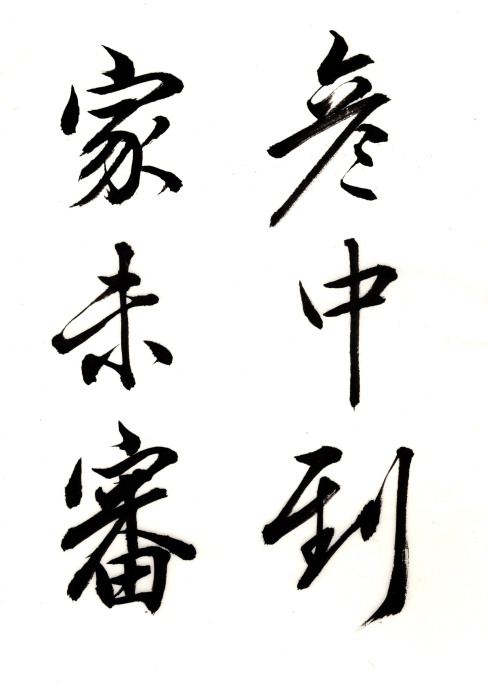 彥中到
家未審